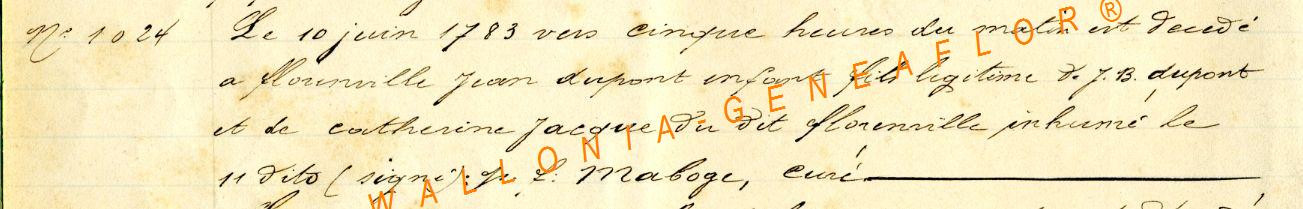 Nº 1024 Le 10 juin 1783 vers cinque heures du matin est decedé
a florenville Jean dupont enfant fils legitime de J. B. dupont
et de catherine Jacque du dit florenville inhumé le
11 dito (signé): J. Maboge, curé.
WALLONIA-GENEAFLOR®